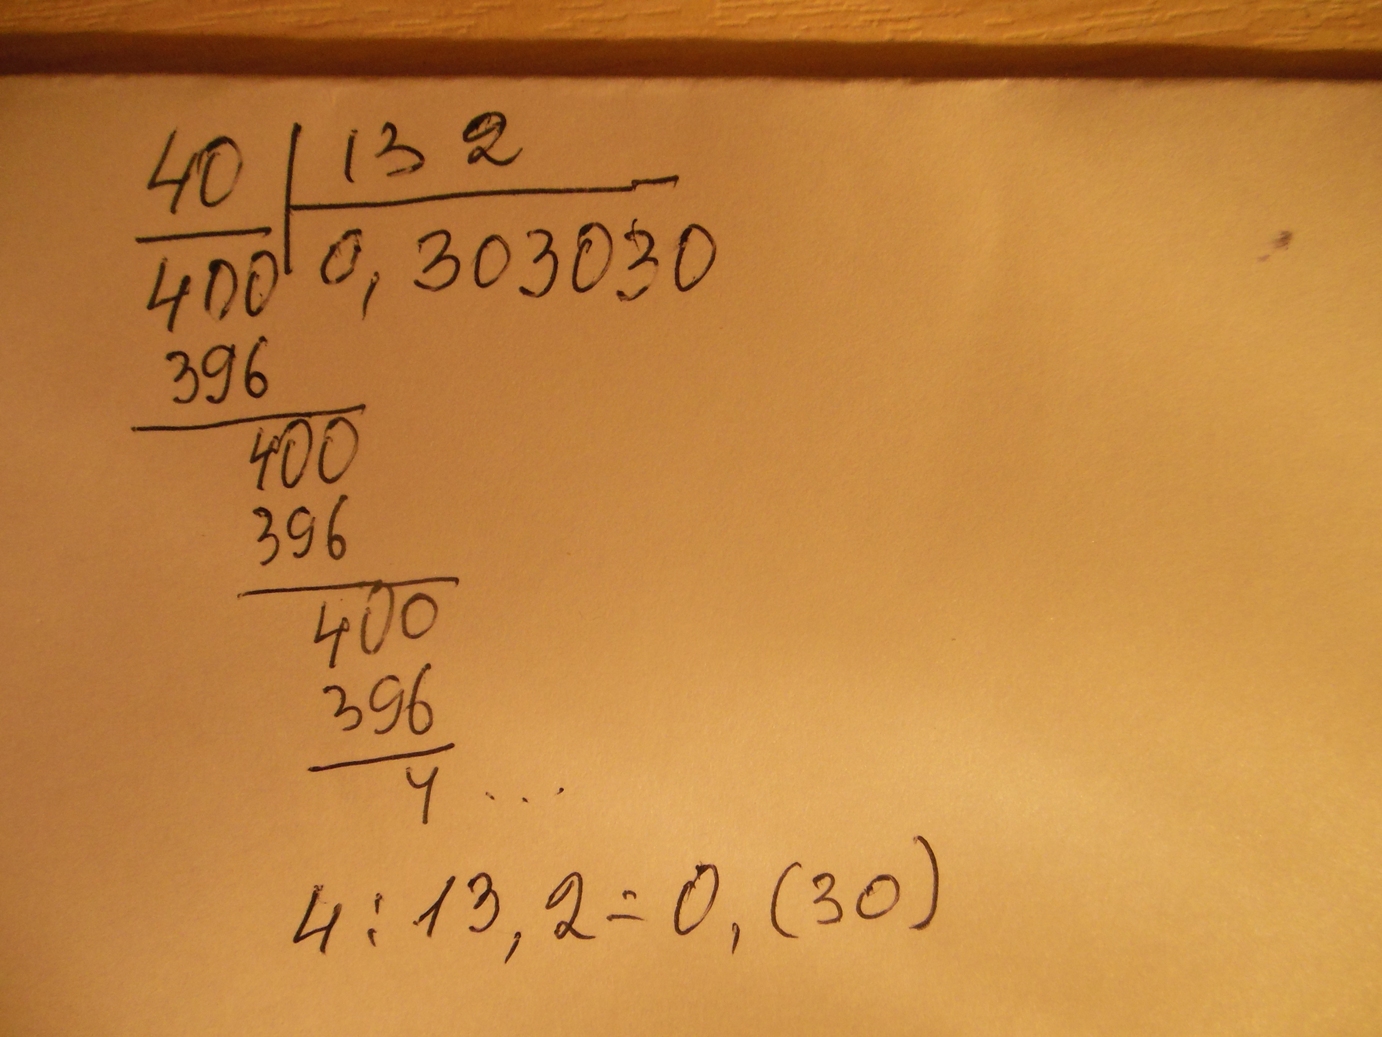 40 132
400 0,303030
396
400
396
400
396
4 ...
4:13,2=0,(30)